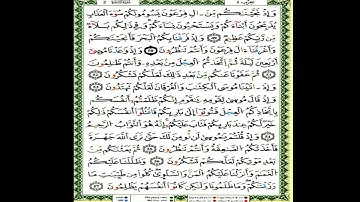 وَإِذْ نَجَّيْنَٰكُم مِّنْ ءَالِ فِرْعَوْنَ يَسُومُونَكُمْ سُوٓءَ ٱلْعَذَابِ
يُذَبِّحُونَ أَبْنَآءَكُمْ وَيَسْتَحْيُونَ نِسَآءَكُمْ وَفِى ذَٰلِكُم بَلَآءٌ
مِّن رَّبِّكُمْ عَظِيمٌ ٤٩ وَإِذْ فَرَقْنَا بِكُمُ ٱلْبَحْرَ فَأَنجَيْنَٰكُمْ
وَأَغْرَقْنَآ ءَالَ فِرْعَوْنَ وَأَنتُمْ تَنظُرُونَ ٥٠ وَإِذْ وَٰعَدْنَا مُوسَىٰٓ
أَرْبَعِينَ لَيْلَةً ثُمَّ ٱتَّخَذْتُمُ ٱلْعِجْلَ مِنۢ بَعْدِهِۦ وَأَنتُمْ ظَٰلِمُونَ
٥١ ثُمَّ عَفَوْنَا عَنكُم مِّنۢ بَعْدِ ذَٰلِكَ لَعَلَّكُمْ تَشْكُرُونَ
٥٢ وَإِذْ ءَاتَيْنَا مُوسَى ٱلْكِتَٰبَ وَٱلْفُرْقَانَ لَعَلَّكُمْ تَهْتَدُونَ
٥٣ وَإِذْ قَالَ مُوسَىٰ لِقَوْمِهِۦ يَٰقَوْمِ إِنَّكُمْ ظَلَمْتُمْ أَنفُسَكُم
بِٱتِّخَاذِكُمُ ٱلْعِجْلَ فَتُوبُوٓا۟ إِلَىٰ بَارِئِكُمْ فَٱقْتُلُوٓا۟ أَنفُسَكُمْ ذَٰلِكُمْ
خَيْرٌ لَّكُمْ عِندَ بَارِئِكُمْ فَتَابَ عَلَيْكُمْ إِنَّهُۥ هُوَ ٱلتَّوَّابُ ٱلرَّحِيمُ
٥٤ وَإِذْ قُلْتُمْ يَٰمُوسَىٰ لَن نُّؤْمِنَ لَكَ حَتَّىٰ نَرَى ٱللَّهَ جَهْرَةً
فَأَخَذَتْكُمُ ٱلصَّٰعِقَةُ وَأَنتُمْ تَنظُرُونَ ٥٥ ثُمَّ بَعَثْنَٰكُم مِّنۢ
بَعْدِ مَوْتِكُمْ لَعَلَّكُمْ تَشْكُرُونَ ٥٦ وَظَلَّلْنَا عَلَيْكُمُ
ٱلْغَمَامَ وَأَنزَلْنَا عَلَيْكُمُ ٱلْمَنَّ وَٱلسَّلْوَىٰ كُلُوا۟ مِن طَيِّبَٰتِ مَا
رَزَقْنَٰكُمْ وَمَا ظَلَمُونَا وَلَٰكِن كَانُوٓا۟ أَنفُسَهُمْ يَظْلِمُونَ ٥٧